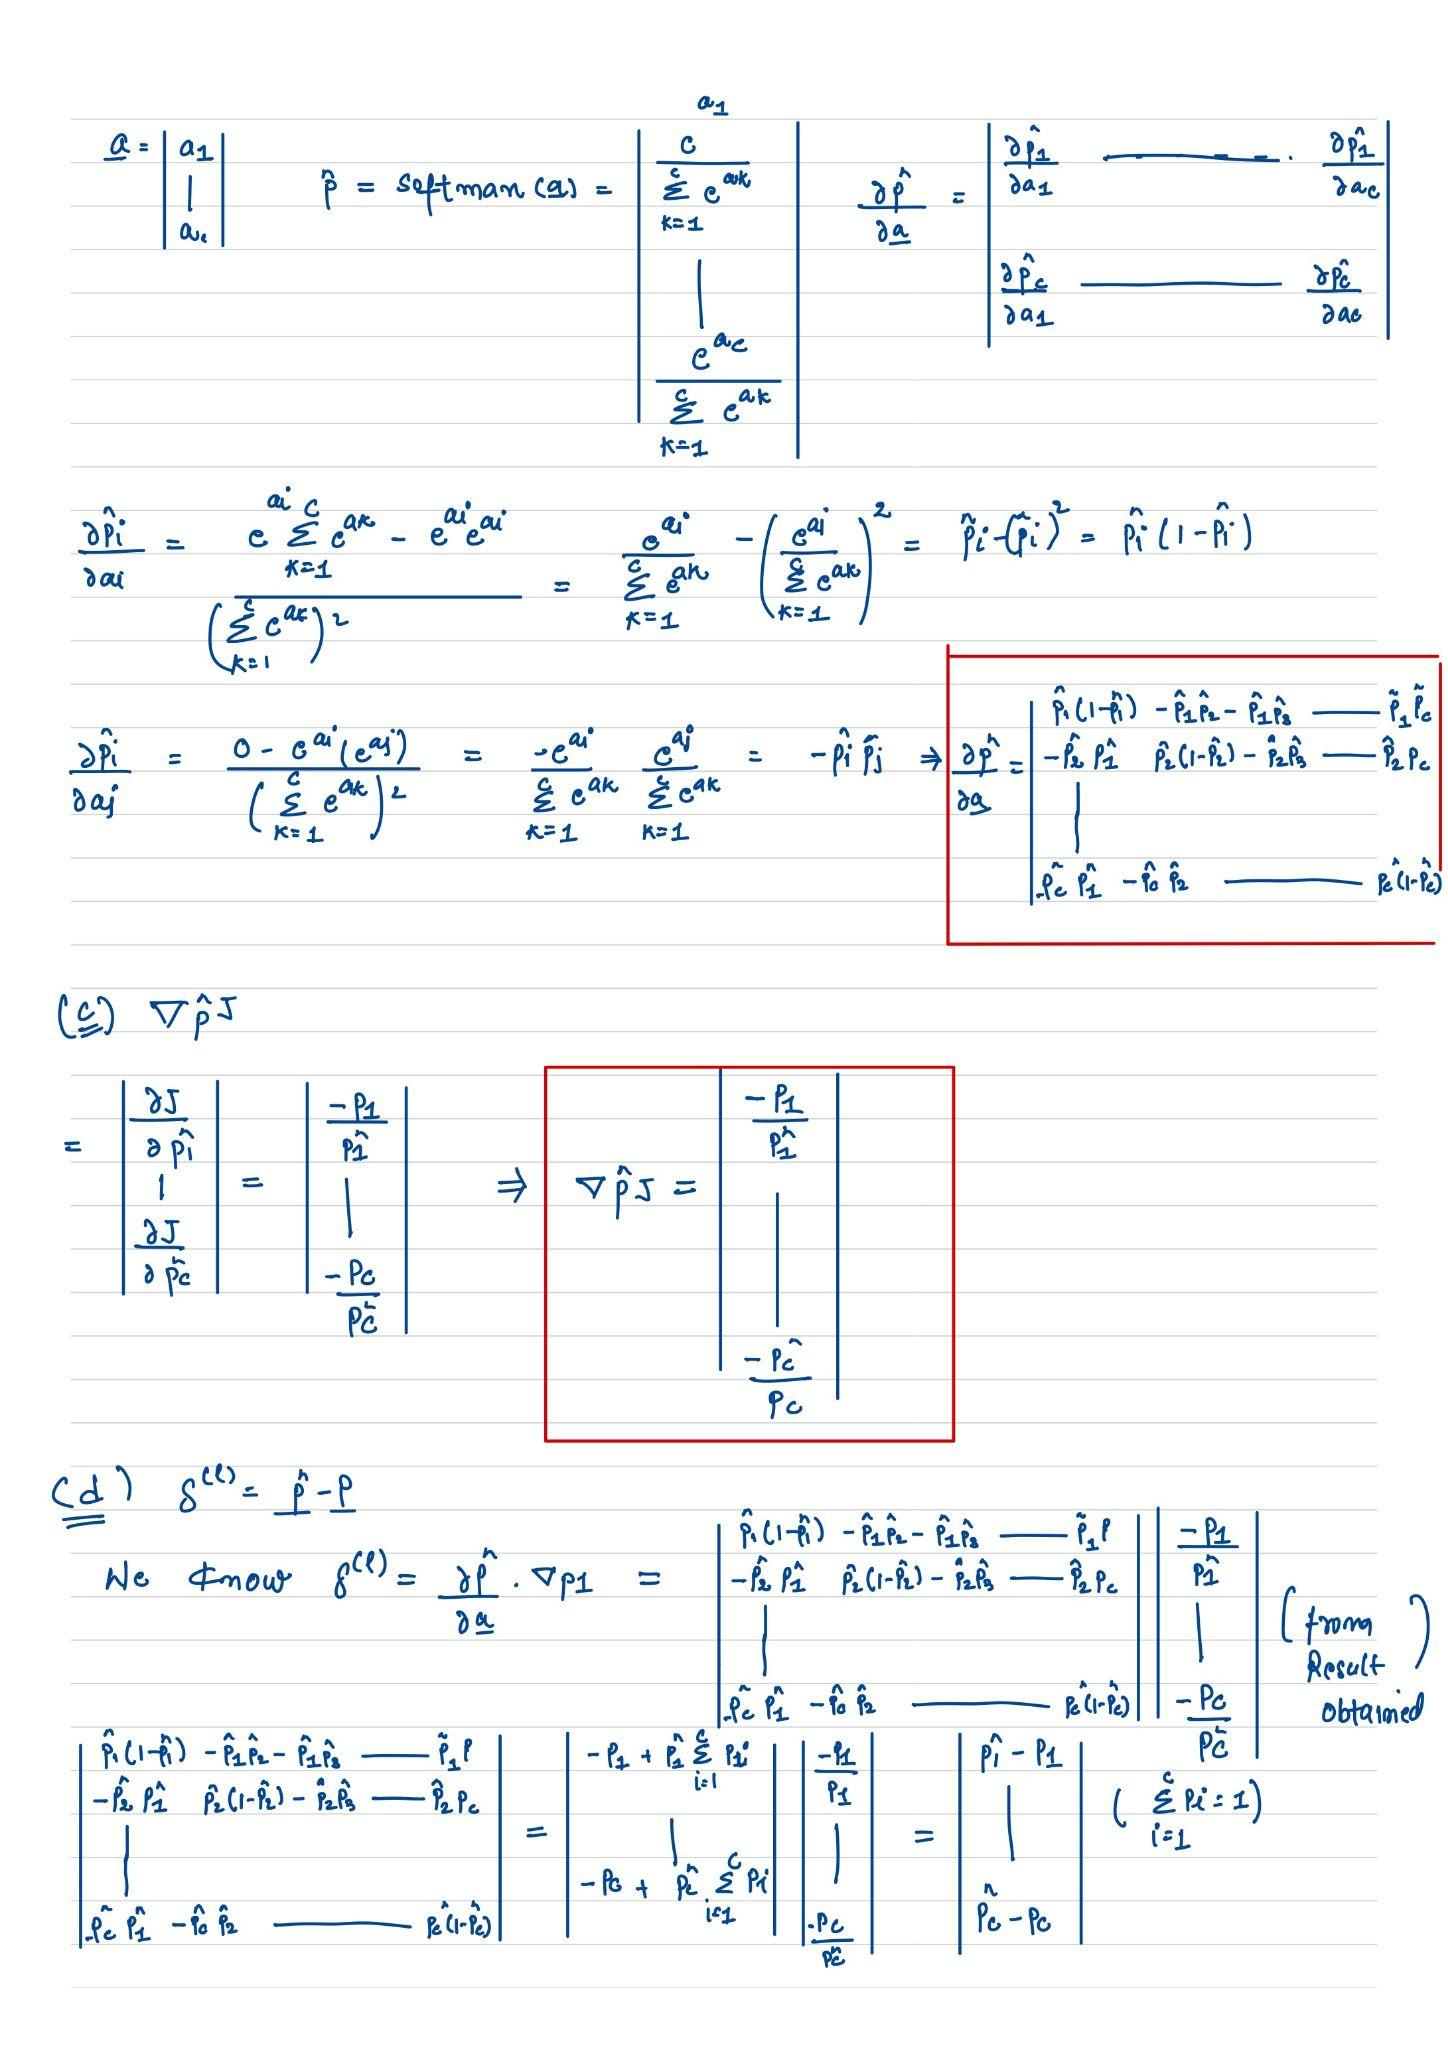 a = | a1 | ac |   p̂ = softman (a) = | e^a1 / Σ_{k=1}^{c} e^ak | e^ac / Σ_{k=1}^{c} e^ak |   ∂p̂/∂a = | ∂p̂1/∂a1 --- ∂p̂1/∂ac | ∂p̂c/∂a1 --- ∂p̂c/∂ac |
∂p̂i/∂ai = (e^ai Σ_{k=1}^{c} e^ak - e^ai e^ai) / (Σ_{k=1}^{c} e^ak)^2 = e^ai / Σ_{k=1}^{c} e^ak - (e^ai / Σ_{k=1}^{c} e^ak)^2 = p̂i - (p̂i)^2 = p̂i (1 - p̂i)
∂p̂i/∂aj = (0 - e^ai (e^aj)) / (Σ_{k=1}^{c} e^ak)^2 = -e^ai / Σ_{k=1}^{c} e^ak e^aj / Σ_{k=1}^{c} e^ak = - p̂i p̂j ⇒ ∂p̂/∂a = | p̂1(1-p̂1) -p̂1p̂2 - p̂1p̂3 --- p̂1 p̂c | -p̂2 p̂1 p̂2(1-p̂2) - p̂2p̂3 --- p̂2 pc | -p̂c p̂1 -p̂c p̂2 --- p̂c(1-p̂c) |
(c) ∇p̂J
= | ∂J/∂p̂1 | ∂J/∂p̂c | = | -P1/p̂1 | -Pc/p̂c | ⇒ ∇p̂J = | -P1/p̂1 | -Pĉ/Pc |
(d) δ^(l) = p̂ - P
We know δ^(l) = ∂p̂/∂a . ∇p1 = | p̂1(1-p̂1) -p̂1p̂2 - p̂1p̂3 --- p̂1 P | -p̂2 p̂1 p̂2(1-p̂2) - p̂2p̂3 --- p̂2 pc | -p̂c p̂1 -p̂c p̂2 --- p̂c(1-p̂c) | | -P1/p̂1 | -Pc/p̂c | (from Result obtained)
| p̂1(1-p̂1) -p̂1p̂2 - p̂1p̂3 --- p̂1 P | -p̂2 p̂1 p̂2(1-p̂2) - p̂2p̂3 --- p̂2 pc | -p̂c p̂1 -p̂c p̂2 --- p̂c(1-p̂c) | = | -P1 + p̂1 Σ_{i=1}^{c} P1i | -Pc + p̂c Σ_{i=1}^{c} Pi | | -P1/p̂1 | -Pc/p̂c | = | p̂1 - P1 | p̂c - pc | (Σ_{i=1}^{c} Pi = 1)